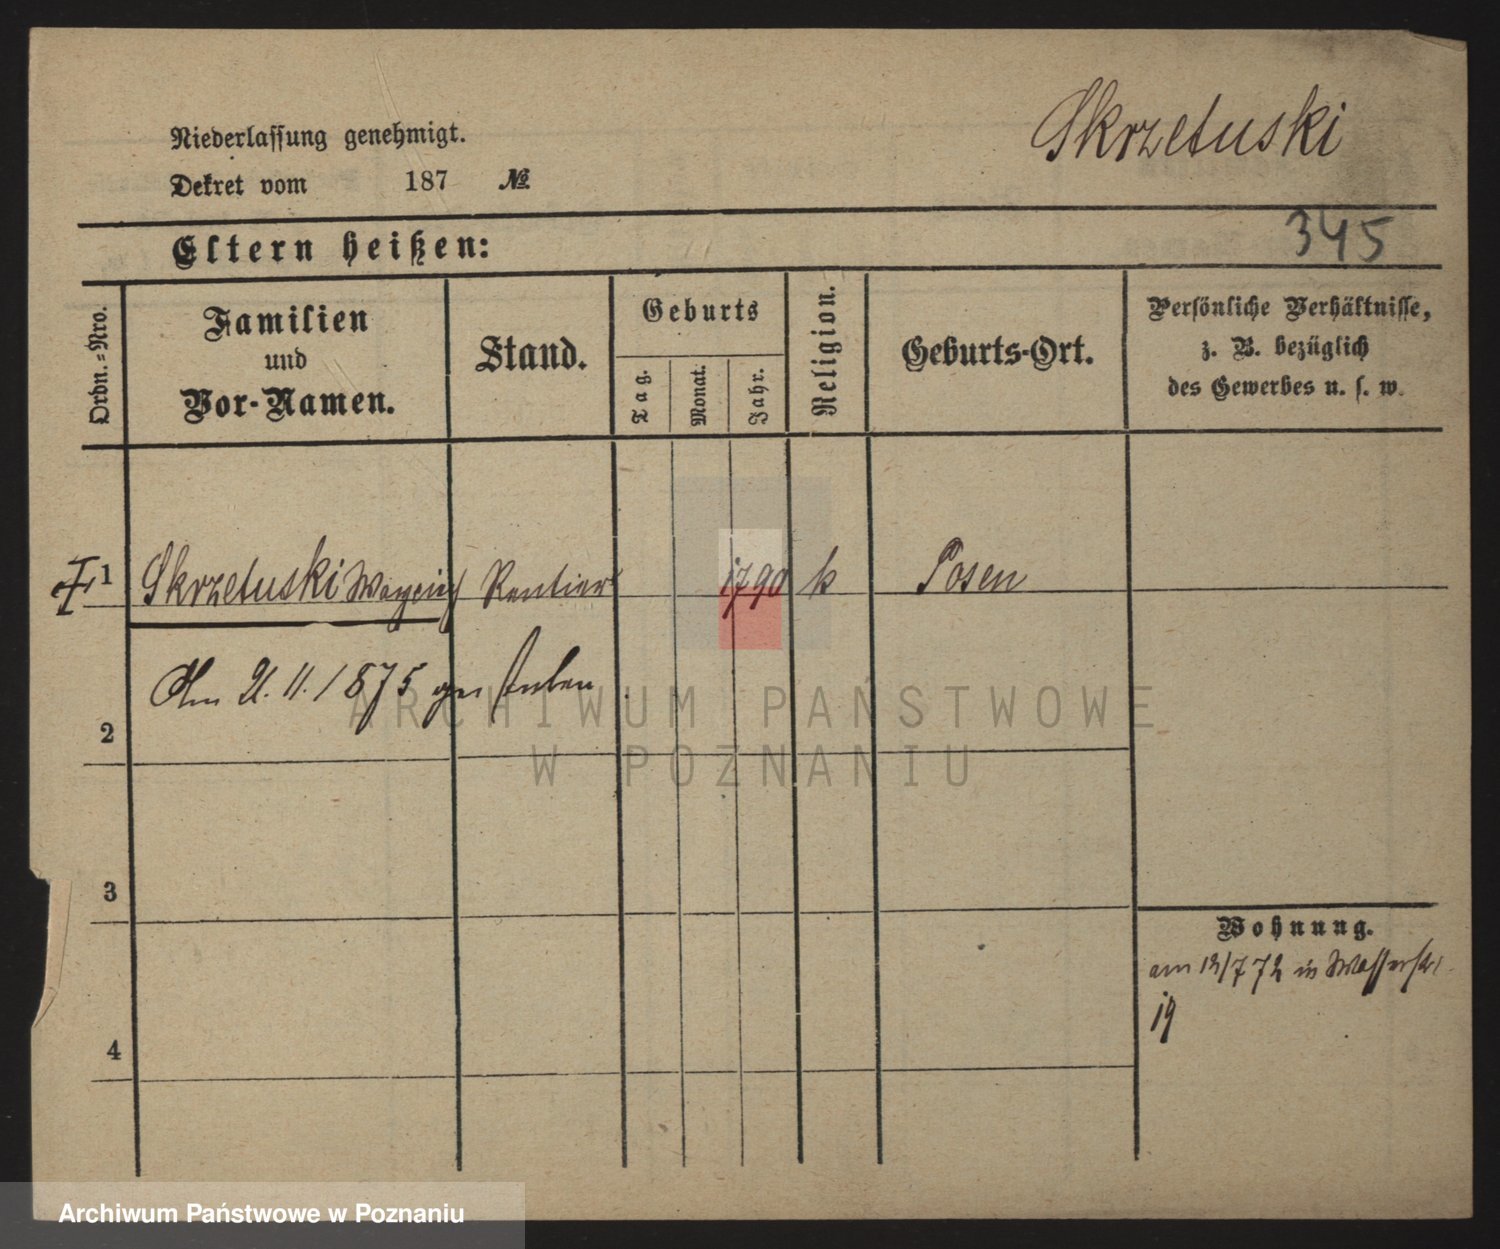 Skrzetuski
Niederlassung genehmigt.
Dekret vom 187 №
345
Eltern heißen:
Ordn.=Nro.
Familien
und
Vor-Namen.
Stand.
Geburts
Tag.
Monat.
Jahr.
Religion.
Geburts-Ort.
Persönliche Verhältnisse,
z. B. bezüglich
des Gewerbes u. s. w.
1 Skrzetuski Rentier 1790 k Posen
Am 21.11.1875 gestorben
2
3
4
Wohnung.
am 12/7 72 in Wasserstr.
19
ARCHIWUM PAŃSTWOWE
W POZNANIU
Archiwum Państwowe w Poznaniu